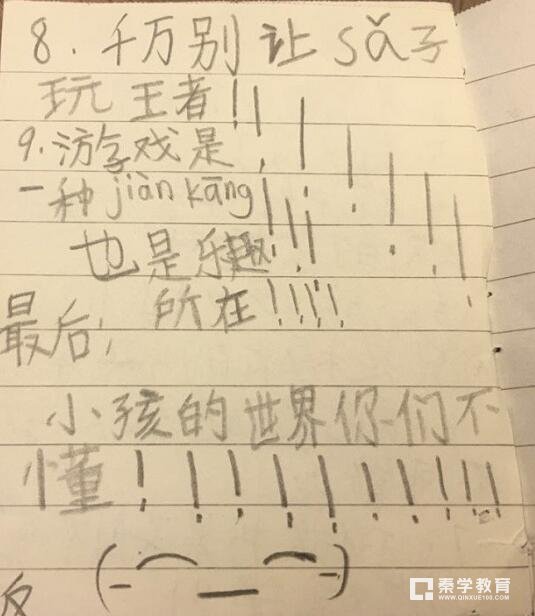 8.千万别让sǎ子
玩王者!!!!!!!
9.游戏是
一种jiàn kāng!!!
也是乐趣
所在!!!!
最后,
小孩的世界你们不
懂!!!!!!!!!!
反
秦学教育
WWW.QINXUE100.COM